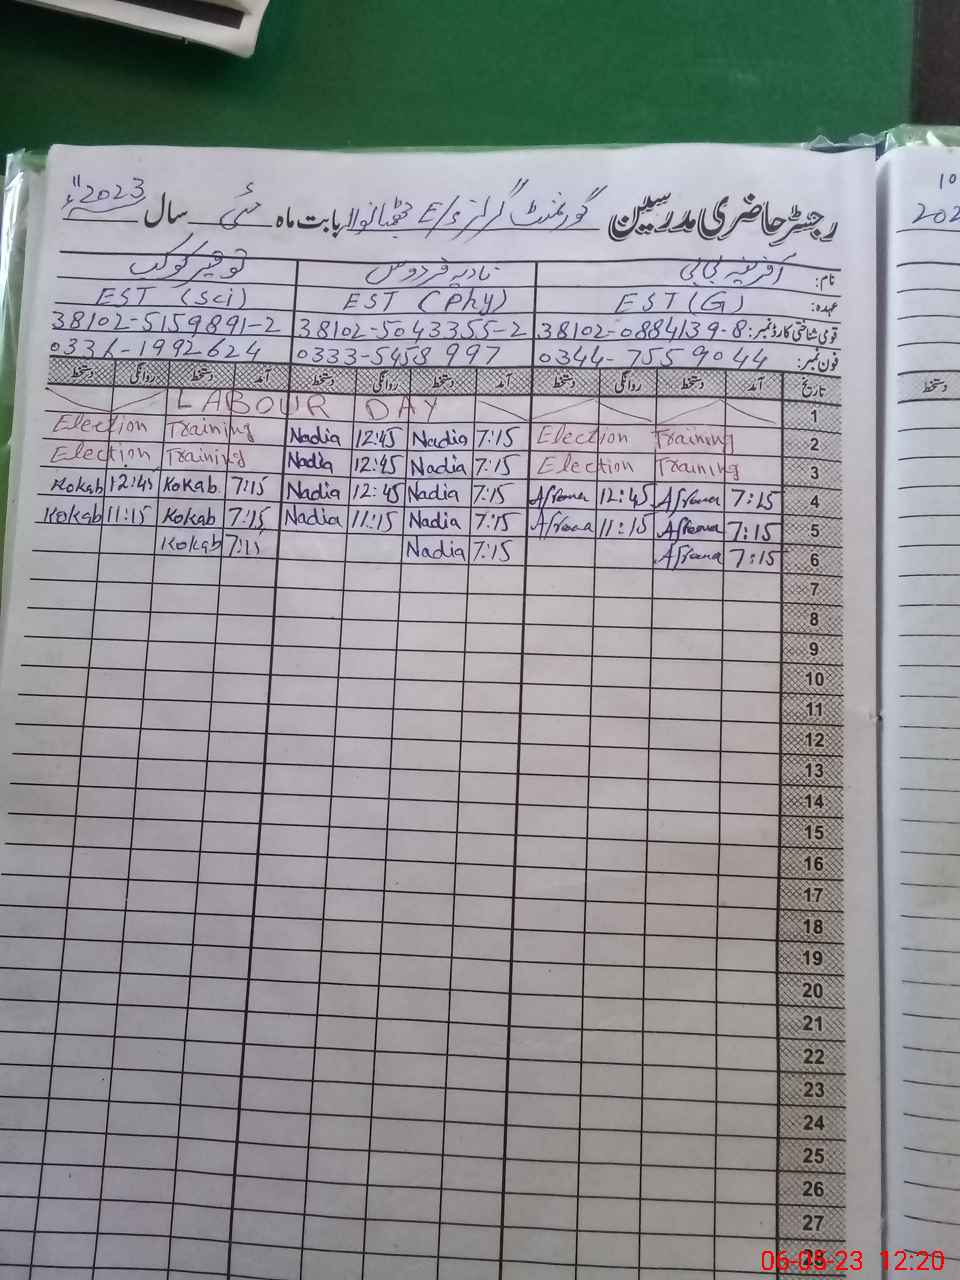 رجسٹر حاضری مدرسین گورنمنٹ گرلز E/S بابت ماہ مئی سال 2023ء
نام: آفرینہ بی بی نادیہ فردوس توقیر کوکب
عہدہ: EST (G) EST (Phy) EST (Sci)
قومی شناختی کارڈ نمبر: 38102-0884139-8 38102-5043355-2 38102-5159891-2
فون نمبر: 0344-7559044 0333-5458997 0336-1992624
تاریخ آمد دستخط روانگی دستخط آمد دستخط روانگی دستخط آمد دستخط روانگی دستخط
1 LABOUR DAY
2 Election Training 7:15 Nadia 12:45 Nadia Election Training
3 Election Training 7:15 Nadia 12:45 Nadia Election Training
4 7:15 Afreena 12:45 Afreena 7:15 Nadia 12:45 Nadia 7:15 Kokab 12:45 Kokab
5 7:15 Afreena 11:15 Afreena 7:15 Nadia 11:15 Nadia 7:15 Kokab 11:15 Kokab
6 7:15 Afreena 7:15 Nadia 7:15 Kokab
7
8
9
10
11
12
13
14
15
16
17
18
19
20
21
22
23
24
25
26
27
28
10
202
دستخط
06-05-23 12:20